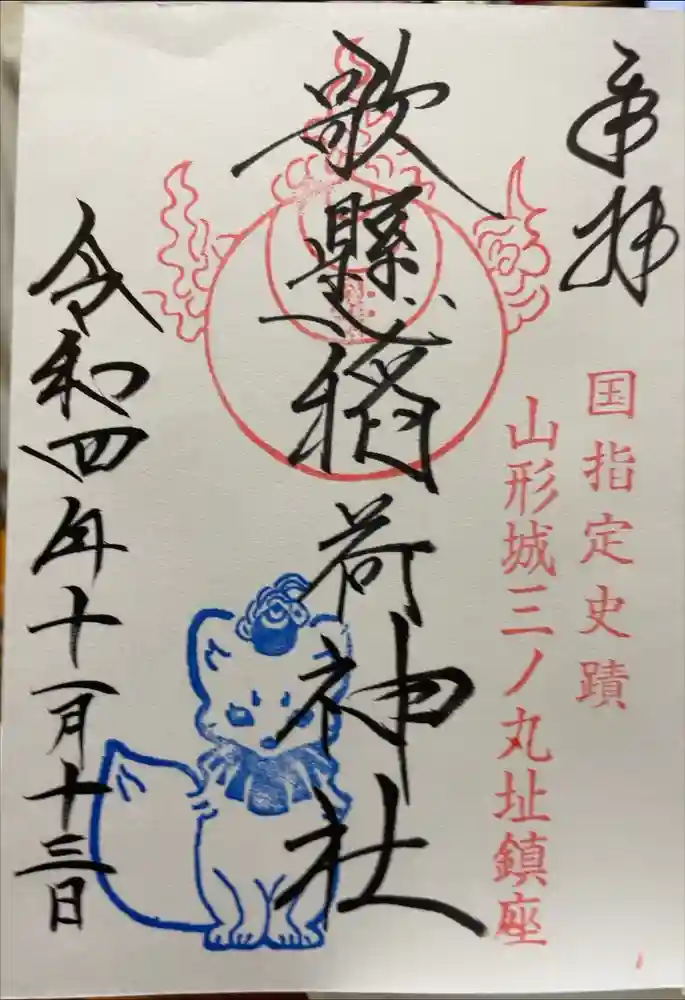 奉拝
国指定史蹟
山形城三ノ丸址鎮座
歌懸稲荷神社
令和四年十一月十三日